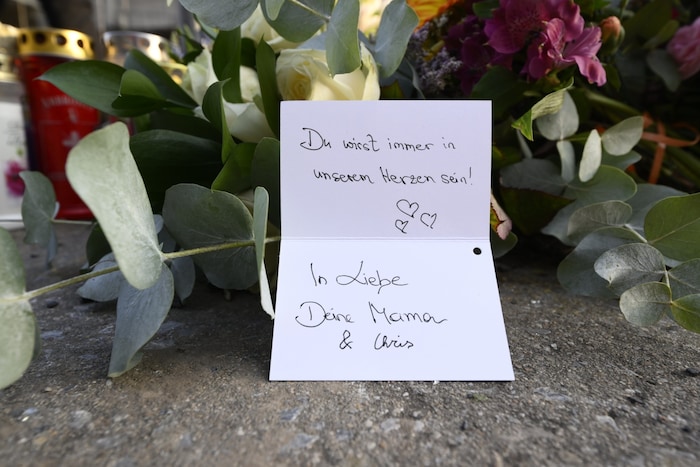 Du wirst immer in
unseren Herzen sein!
In Liebe
Deine Mama
& Chris